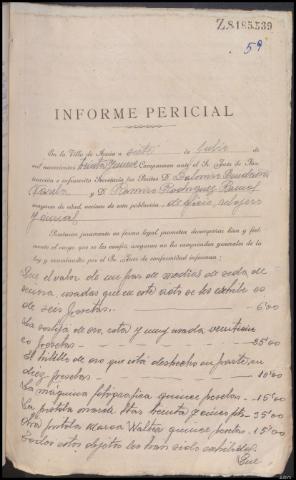 Z.8185539
59
INFORME PERICIAL
En la Villa de Noia a siete de Julio de
mil novecientos treinta y nueve Comparecen ante el Sr. Juez de Ins-
trucción e infrascrito Secretario los Peritos D. Dalmiro
Varela y D. Ramiro Rodriguez Ramos
mayores de edad, vecinos de esta población, de oficio relojero
y
Prestaron juramento en forma legal prometen desempeñar bien y fiel-
mente el cargo que se les confía, aseguran no les comprenden generales de la
ley y examinados por el Sr. Juez de conformidad informan:
Que el valor de un par de medias de seda de
señora, usadas que en este acto se les exhibe es
de seis pesetas. 6'00
La sortija de oro, rota y muy usada veintcin-
co pesetas 25'00
El hilillo de oro que está deshecho en parte, en
diez pesetas 10'00
La máquina fotografica quince pesetas 15'00
La pistola marca Star treinta y cinco pts. 35'00
Otra pistola marca Walter quince pesetas 15'00
Todos estos objetos les han sido exhibidos.
Que